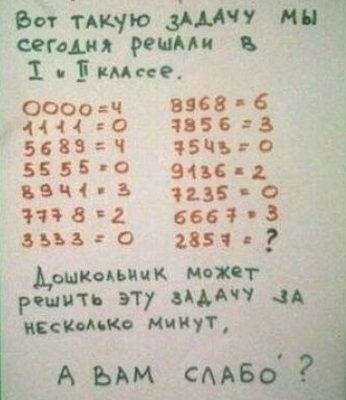 Вот такую задачу мы
сегодня решали в
I и II классе.
0000=4
1111=0
5689=4
5555=0
8941=3
7778=2
3333=0
8968=6
7856=3
7543=0
9136=2
7235=0
6667=3
2857=?
Дошкольник может
решить эту задачу за
несколько минут,
А ВАМ СЛАБО?